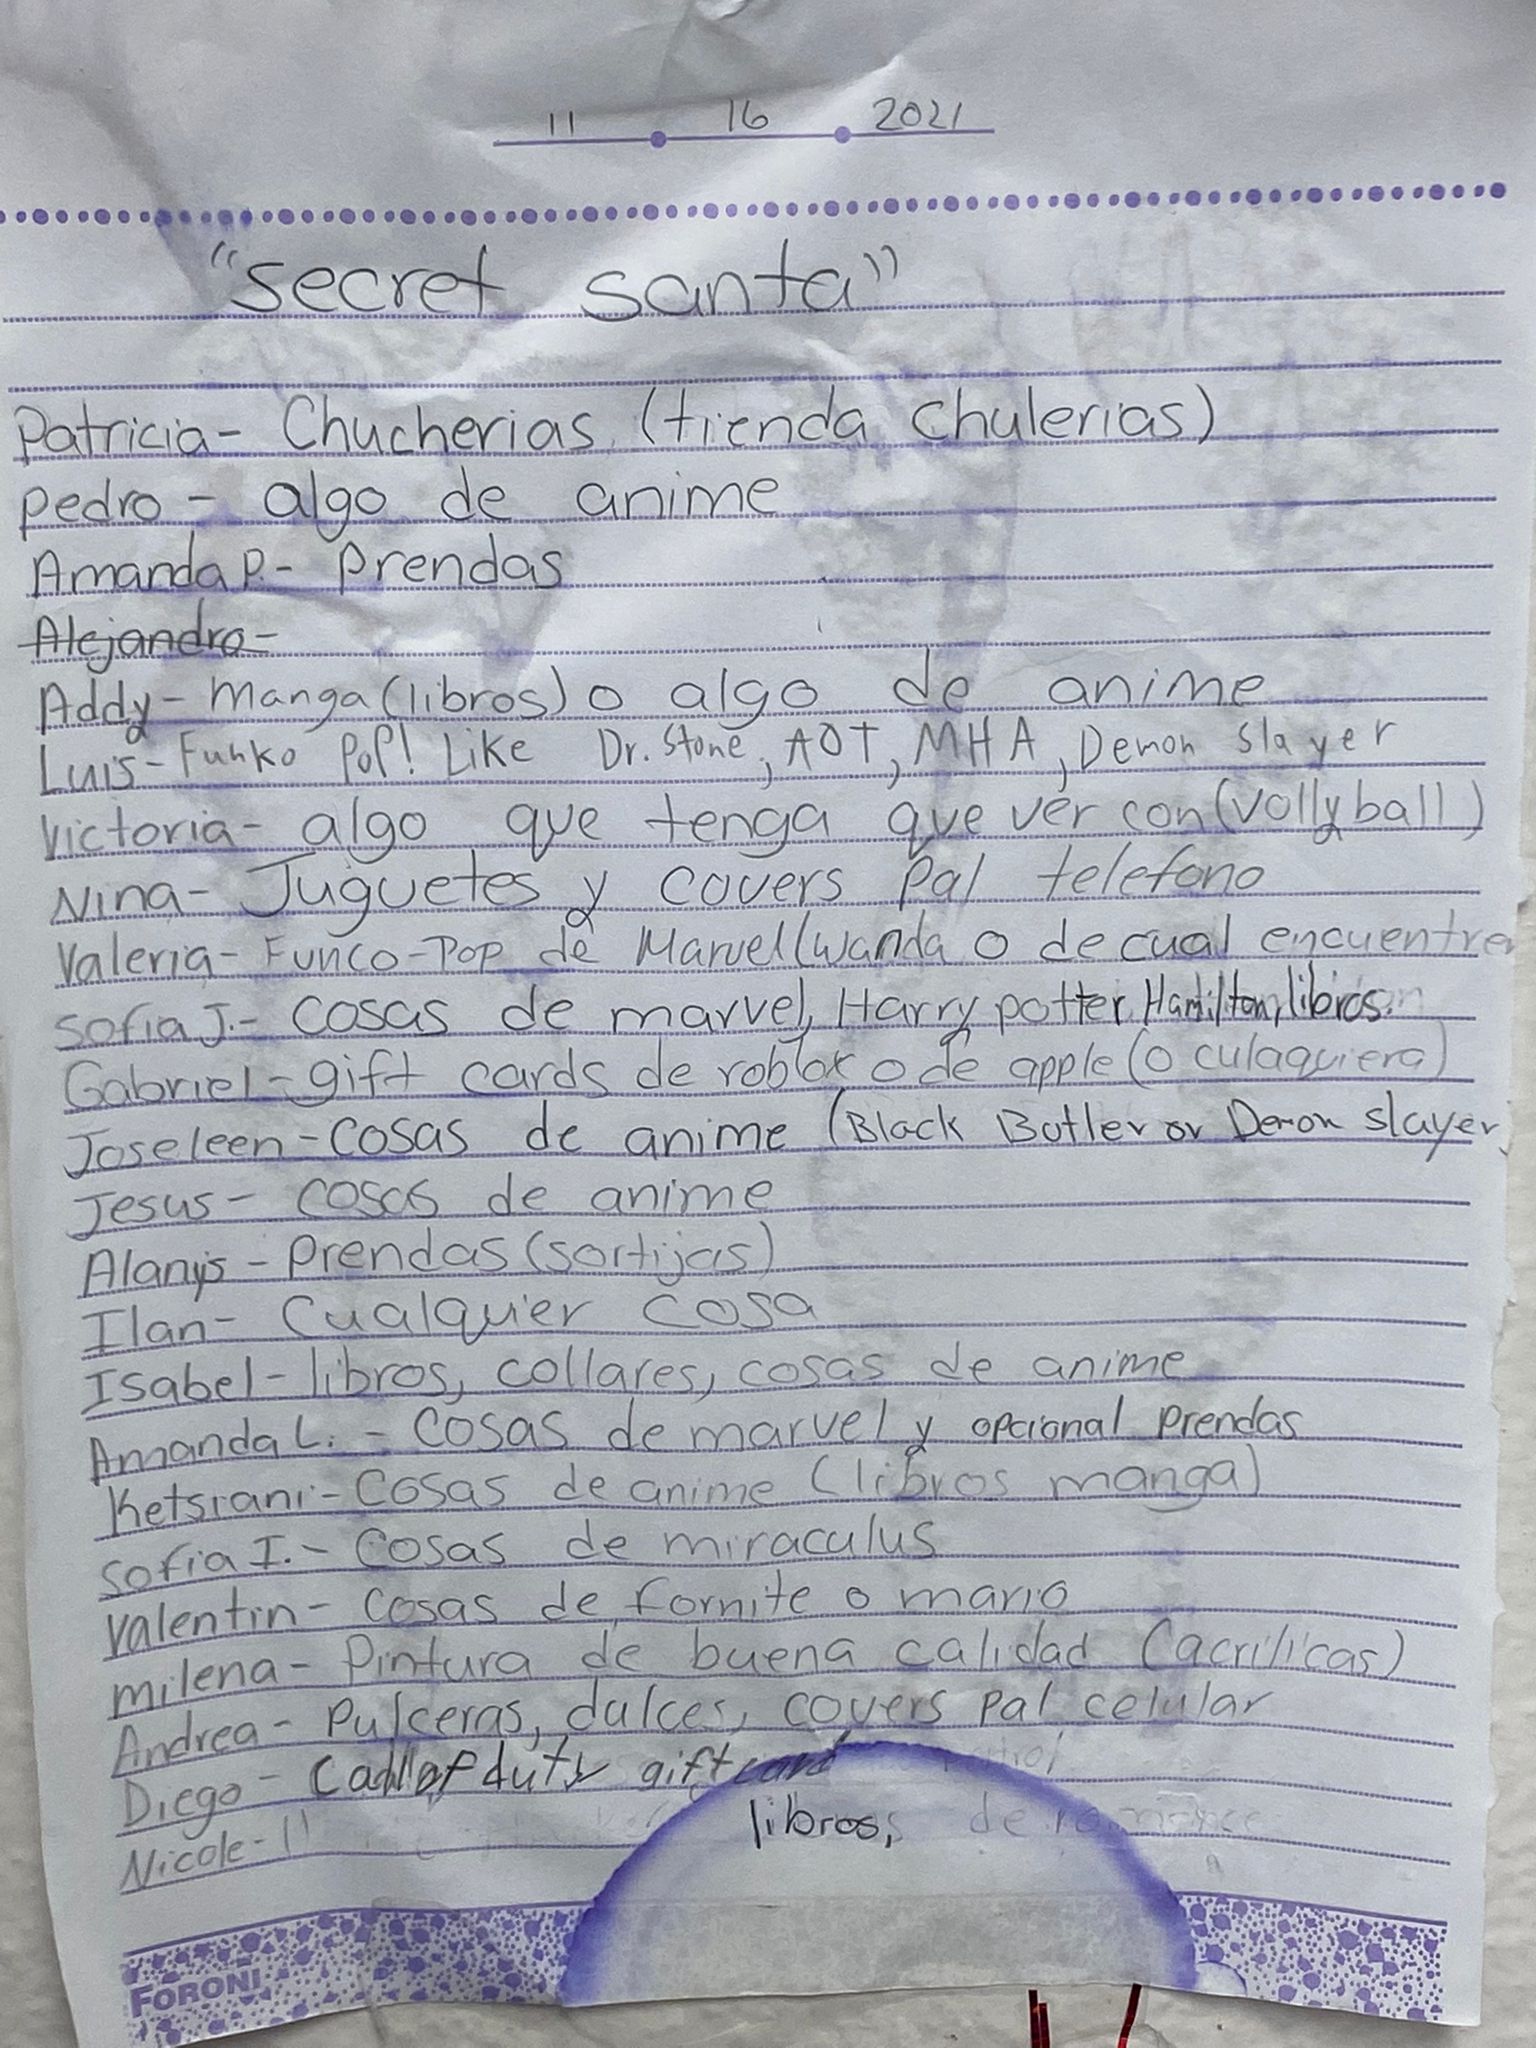 11 16 2021
"secret santa"
Patricia- Chucherias (tienda Chulerias)
Pedro - algo de anime
Amanda P.- Prendas
Alejandro-
Addy- manga (libros) o algo de anime
Luis- Funko Pop! Like Dr. Stone, AOT, MHA, Demon Slayer
Victoria- algo que tenga que ver con (vollyball)
Nina- Juguetes y covers pal telefono
Valeria- Funco-Pop de Marvel (wanda o de cual encuentren
Sofia J.- cosas de marvel, Harry potter, Hamilton, libros.
Gabriel- gift cards de roblox o de apple (o culaquiera)
Joseleen- cosas de anime (Black Butler or Demon slayer)
Jesus- cosas de anime
Alanys - Prendas (sortijas)
Ilan- Cualquier cosa
Isabel- libros, collares, cosas de anime
Amanda L. - cosas de marvel y opcional prendas
Ketsiani- Cosas de anime (libros manga)
Sofia I.- Cosas de miraculus
Valentin- Cosas de fornite o mario
milena- Pintura de buena calidad (acrilicas)
Andrea- Pulceras, dulces, covers pal celular
Diego- Call of duty gift card
Nicole- libros, de romance
FORONI